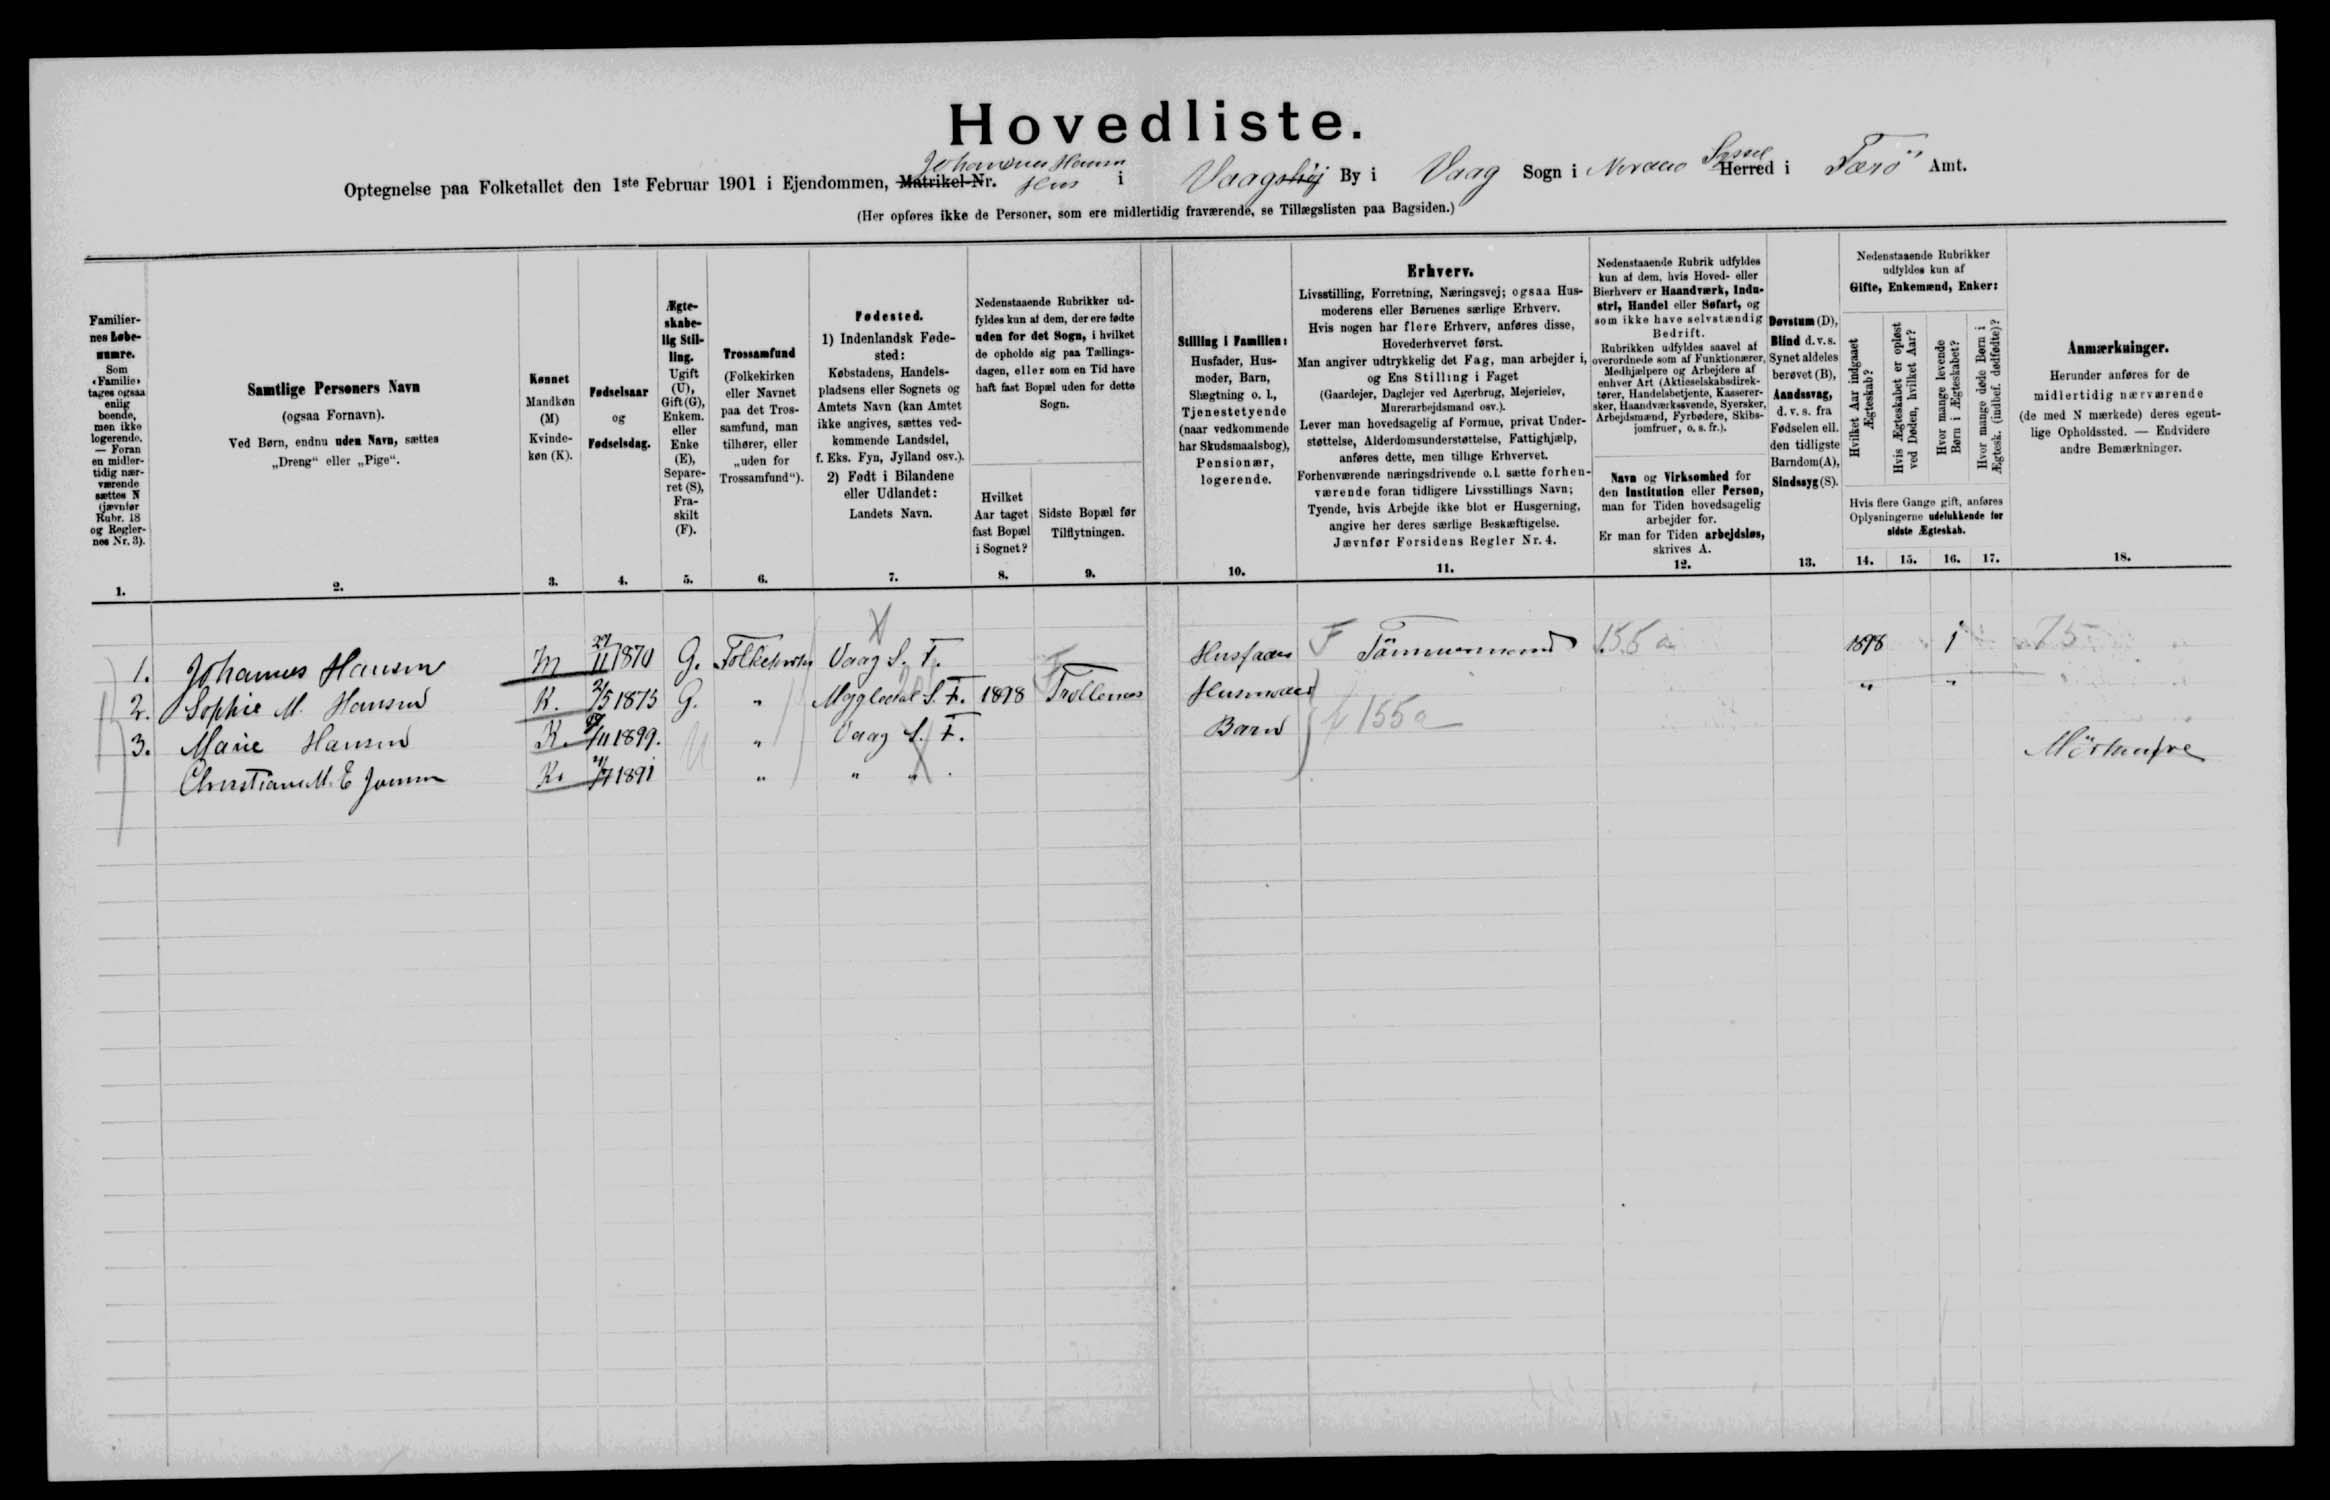 Hovedliste.
Johannes Hansen
Optegnelse paa Folketallet den 1ste Februar 1901 i Ejendommen, Matrikel-Nr. Hus i Vaagshøj By i Vaag Sogn i Norderø Syssel Herred i Færö Amt.
(Her opføres ikke de Personer, som ere midlertidig fraværende, se Tillægslisten paa Bagsiden.)
Familier-
nes Løbe-
numre.
Som
«Familie»
tages ogsaa
enlig
boende,
men ikke
logerende.
— Foran
en midler-
tidig nær-
værende
sættes N
(jævnfør
Rubr. 18
og Regler-
nes Nr. 3).
1.
Samtlige Personers Navn
(ogsaa Fornavn).
Ved Børn, endnu uden Navn, sættes
„Dreng“ eller „Pige“.
2.
Kønnet
Mandkøn
(M)
Kvinde-
køn (K).
3.
Fødselsaar
og
Fødselsdag.
4.
Ægte-
skabe-
lig Stil-
ling.
Ugift
(U),
Gift (G),
Enkem.
eller
Enke
(E),
Separe-
ret (S),
Fra-
skilt
(F).
5.
Trossamfund
(Folkekirken
eller Navnet
paa det Tros-
samfund, man
tilhører, eller
„uden for
Trossamfund“).
6.
Fødested.
1) Indenlandsk Føde-
sted:
Købstadens, Handels-
pladsens eller Sognets og
Amtets Navn (kan Amtet
ikke angives, sættes ved-
kommende Landsdel,
f. Eks. Fyn, Jylland osv.).
2) Født i Bilandene
eller Udlandet:
Landets Navn.
7.
Nedenstaaende Rubrikker ud-
fyldes kun af dem, der ere fødte
uden for det Sogn, i hvilket
de opholde sig paa Tællings-
dagen, eller som en Tid have
haft fast Bopæl uden for dette
Sogn.
Hvilket
Aar taget
fast Bopæl
i Sognet?
8.
Sidste Bopæl før
Tilflytningen.
9.
Stilling i Familien:
Husfader, Hus-
moder, Barn,
Slægtning o. l.,
Tjenestetyende
(naar vedkommende
har Skudsmaalsbog),
Pensionær,
logerende.
10.
Erhverv.
Livsstilling, Forretning, Næringsvej; ogsaa Hus-
moderens eller Børnenes særlige Erhverv.
Hvis nogen har flere Erhverv, anføres disse,
Hovederhvervet først.
Man angiver udtrykkelig det Fag, man arbejder i,
og Ens Stilling i Faget
(Gaardejer, Daglejer ved Agerbrug, Mejerielev,
Murerarbejdsmand osv.).
Lever man hovedsagelig af Formue, privat Under-
støttelse, Alderdomsunderstøttelse, Fattighjælp,
anføres dette, men tillige Erhvervet.
Forhenværende næringsdrivende o. l. sætte forhen-
værende foran tidligere Livsstillings Navn;
Tyende, hvis Arbejde ikke blot er Husgerning,
angive her deres særlige Beskæftigelse.
Jævnfør Forsidens Regler Nr. 4.
11.
Nedenstaaende Rubrik udfyldes
kun af dem, hvis Hoved- eller
Bierhverv er Haandværk, Indu-
stri, Handel eller Søfart, og
som ikke have selvstændig
Bedrift.
Rubrikken udfyldes saavel af
overordnede som af Funktionærer,
Medhjælpere og Arbejdere af
enhver Art (Aktieselskabsdirek-
tører, Handelsbetjente, Kasserer-
sker, Haandværkssvende, Syersker,
Arbejdsmænd, Fyrbødere, Skibs-
jomfruer, o. s. fr.).
Navn og Virksomhed for
den Institution eller Person,
man for Tiden hovedsagelig
arbejder for.
Er man for Tiden arbejdsløs,
skrives A.
12.
Døvstum (D),
Blind d. v. s.
Synet aldeles
berøvet (B),
Aandssvag,
d. v. s. fra
Fødselen ell.
den tidligste
Barndom (A),
Sindssyg (S).
13.
Nedenstaaende Rubrikker
udfyldes kun af
Gifte, Enkemænd, Enker:
Hvilket Aar indgaaet
Ægteskab?
Hvis Ægteskabet er opløst
ved Døden, hvilket Aar?
Hvor mange levende
Børn i Ægteskabet?
Hvor mange døde Børn i
Ægtesk. (indbef. dødfødte)?
Hvis flere Gange gift, anføres
Oplysningerne udelukkende for
sidste Ægteskab.
14. 15. 16. 17.
Anmærkninger.
Herunder anføres for de
midlertidig nærværende
(de med N mærkede) deres egent-
lige Opholdssted. — Endvidere
andre Bemærkninger.
18.
1. Johannes Hansen M 1870 G. Folkekirken Vaag S. F. Husfader F Tömmermand 155 a 1898 1 75
2. Sophie M. Hansen K. 2/5 1875 G. " S. F. 1898 Trøllenes Husmoder " "
3. Marie Hansen K. 1899. U " Vaag S. F. Barn 155a
Christiane M. E Joensen K. 1891 " " "